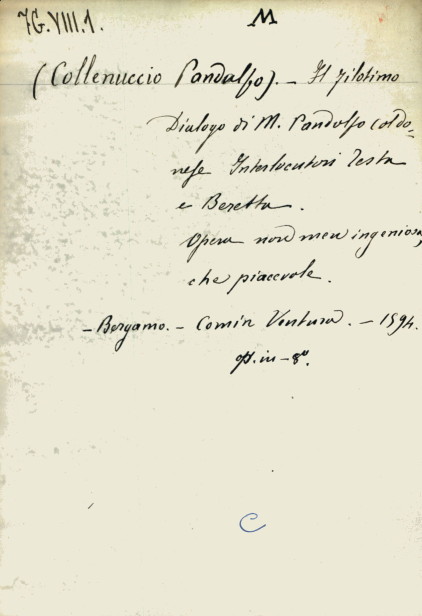 7G.VIII.1.
M
(Collenuccio Pandolfo). — Il filotimo
Dialogo di M. Pandolfo coldo=
nese Interlocutori Testa
e Beretta.
Opera non men ingeniosa,
che piacevole.
— Bergamo. — Comin Ventura. — 1594.
in-8°.
C